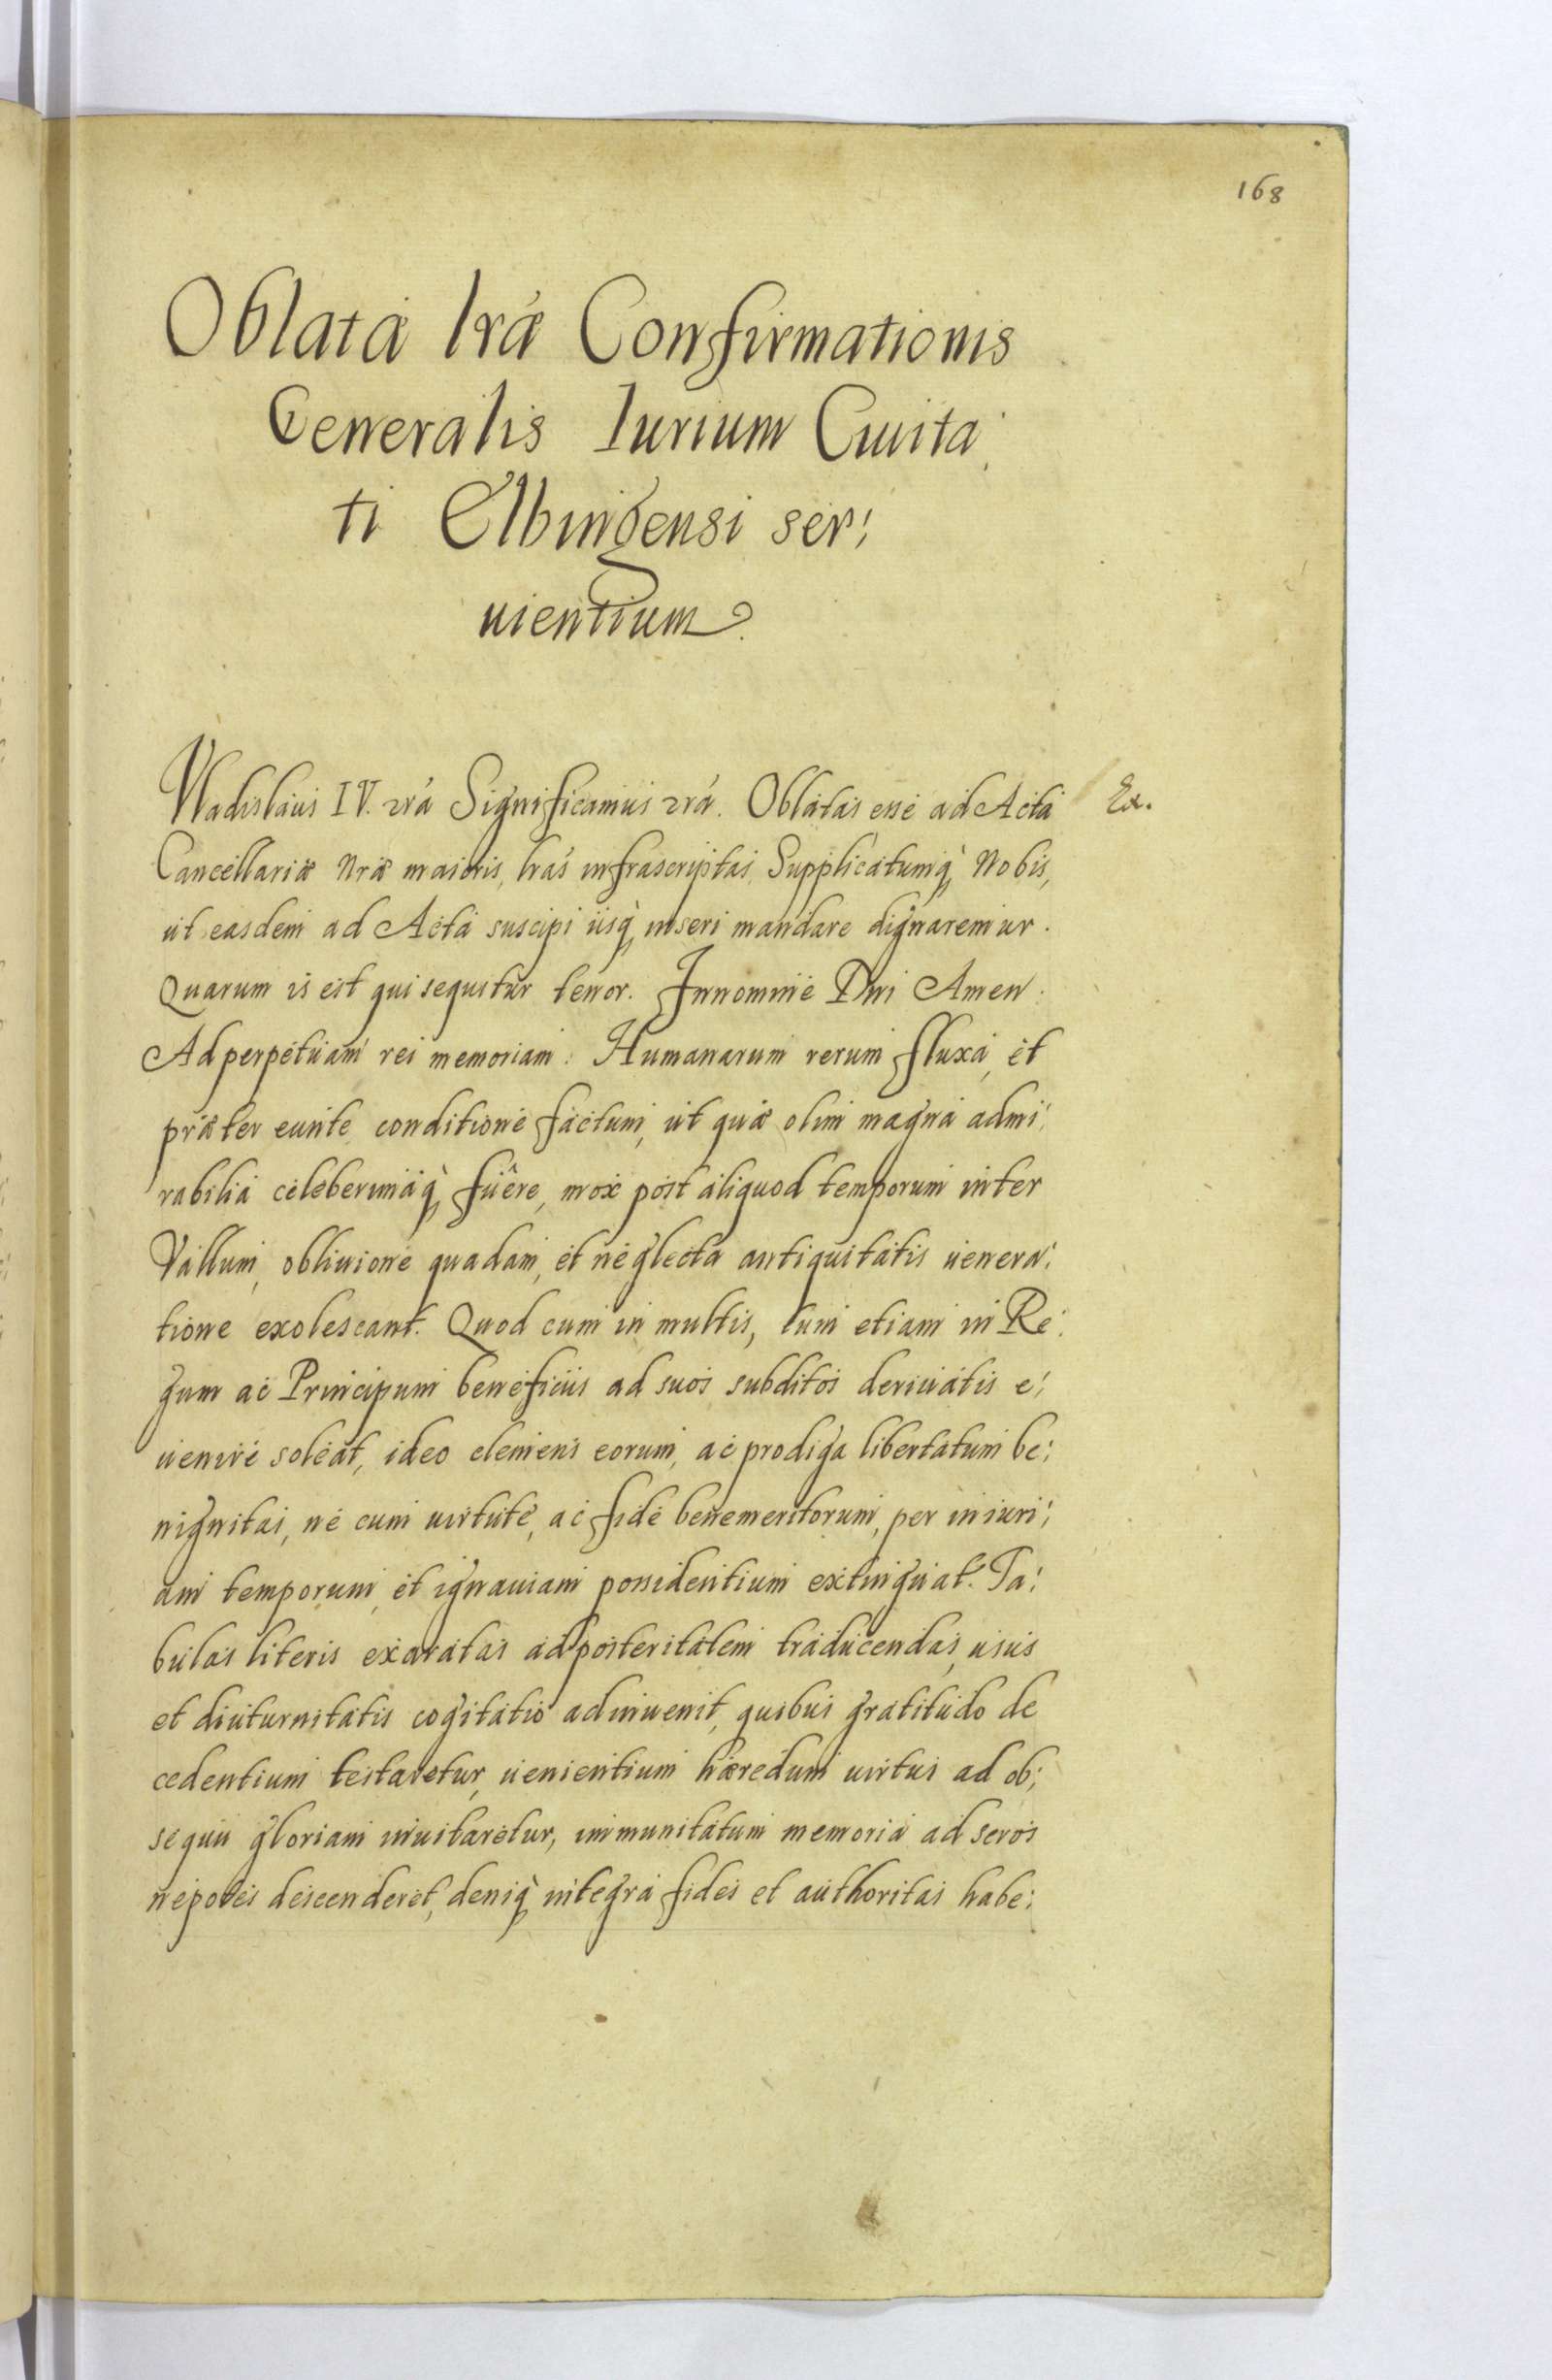 168
Oblata lrã Confirmationis
Generalis Iurium Ciuita,
ti Elbingensi ser;
uientium.
Vladislaus IV. etc̃a Significamus etc̃a. Oblatas esse ad Acta
Ex.
Cancellariæ Nræ maioris, lras infrascriptas, Supplicatumq̃ Nobis,
ut easdem ad Acta suscipi iisq̃ inseri mandare dignaremur.
Quarum is est qui sequitur tenor. In nomine Dni Amen.
Ad perpetuam rei memoriam. Humanarum rerum fluxa, et
præter eunte conditione factum, ut quæ olim magna admi;
rabilia celeberimaq̃ fuêre, mox post aliquod temporum inter
Vallum, obliuione quadam, et neglecta antiquitatis uenera;
tione exolescant. Quod cum in multis, tum etiam in Re;
gum ac Principum beneficiis ad suos subditos deriuatis e;
uenire soleat, ideo clemens eorum, ac prodiga libertatum be;
nignitas, ne cum uirtute, ac fide benemeritorum, per iniuri;
am temporum, et ignauiam possidentium extinguat. Ta;
bulas literis exaratas ad posteritatem traducendas, usus
et diuturnitatis cogitatio adinuenit, quibus gratitudo de
cedentium testaretur, uenientium hæredum uirtus ad ob;
sequii gloriam inuitaretur, immunitatum memoria ad seros
nepotes descenderet, deniq̃ integra fides et authoritas habe;